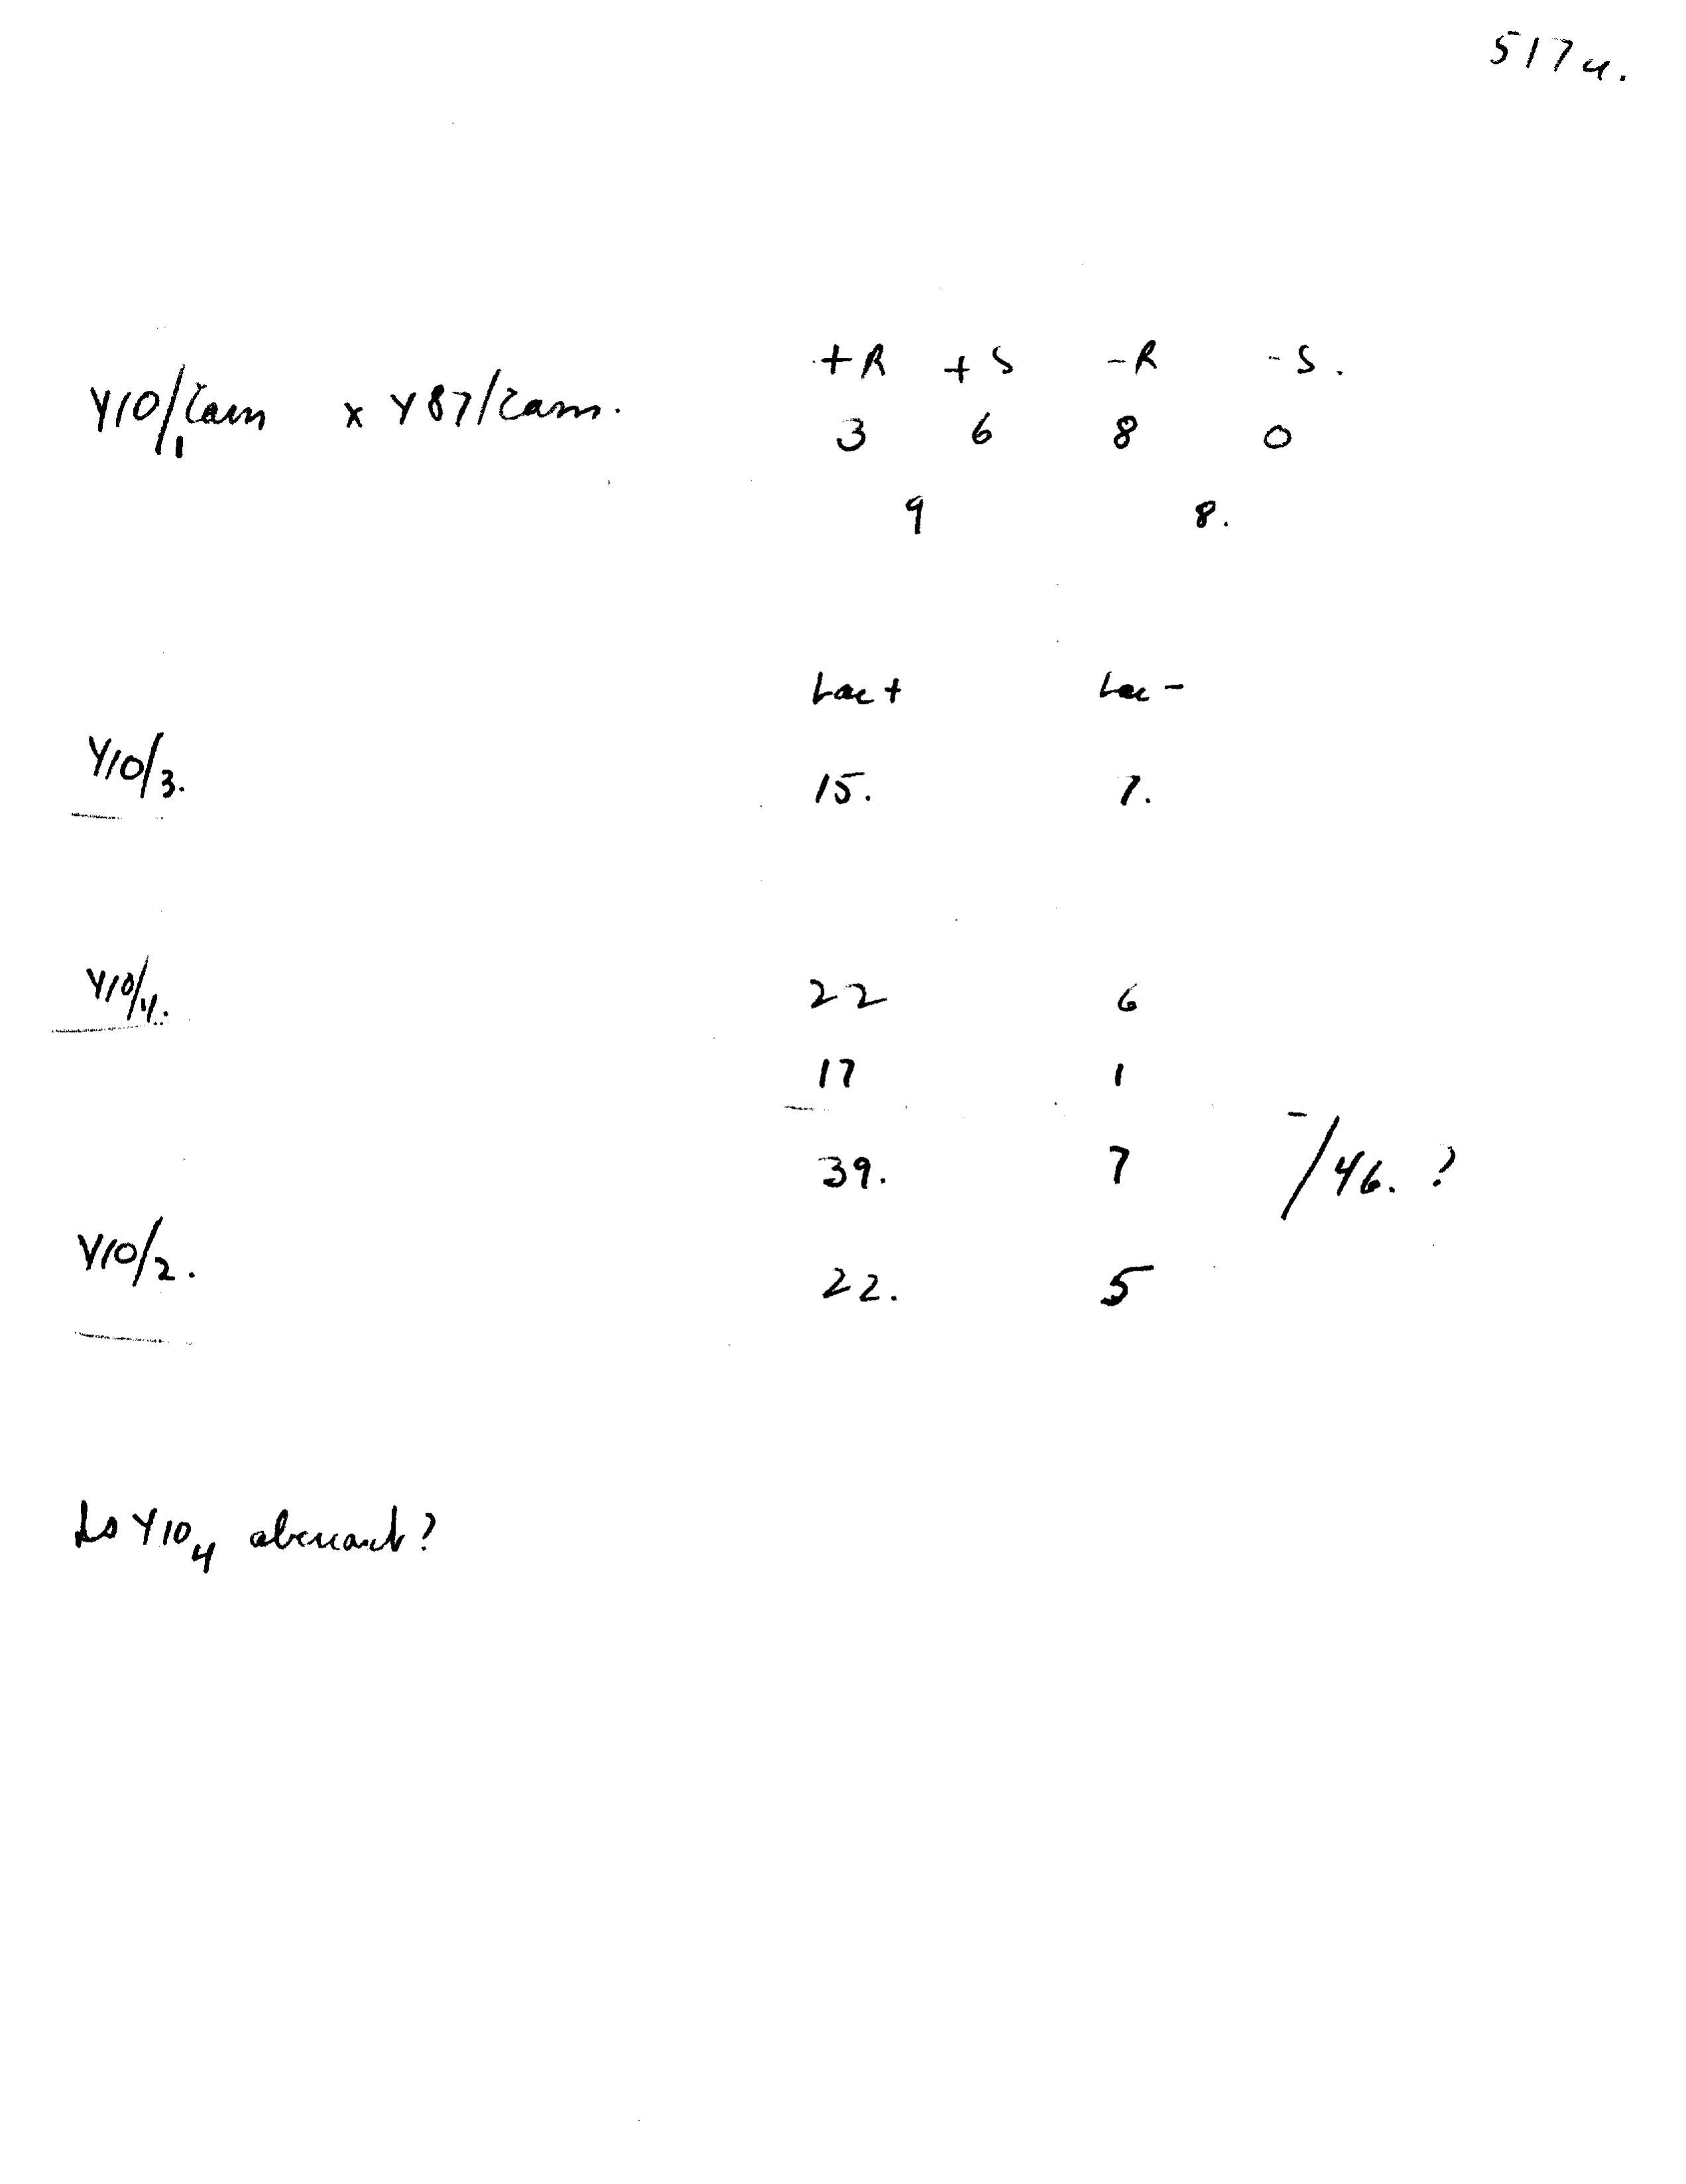 517u.
+R +S -R -S.
Y10/1 Cam x Y87/Cam.
3 6 8 0
9 8.
Lac+ Lac-
Y10/3. 15. 7.
Y10/4. 22 6
17 1
39. 7 -/46. ?
Y10/2. 22. 5
Is Y10₄ aberrant?